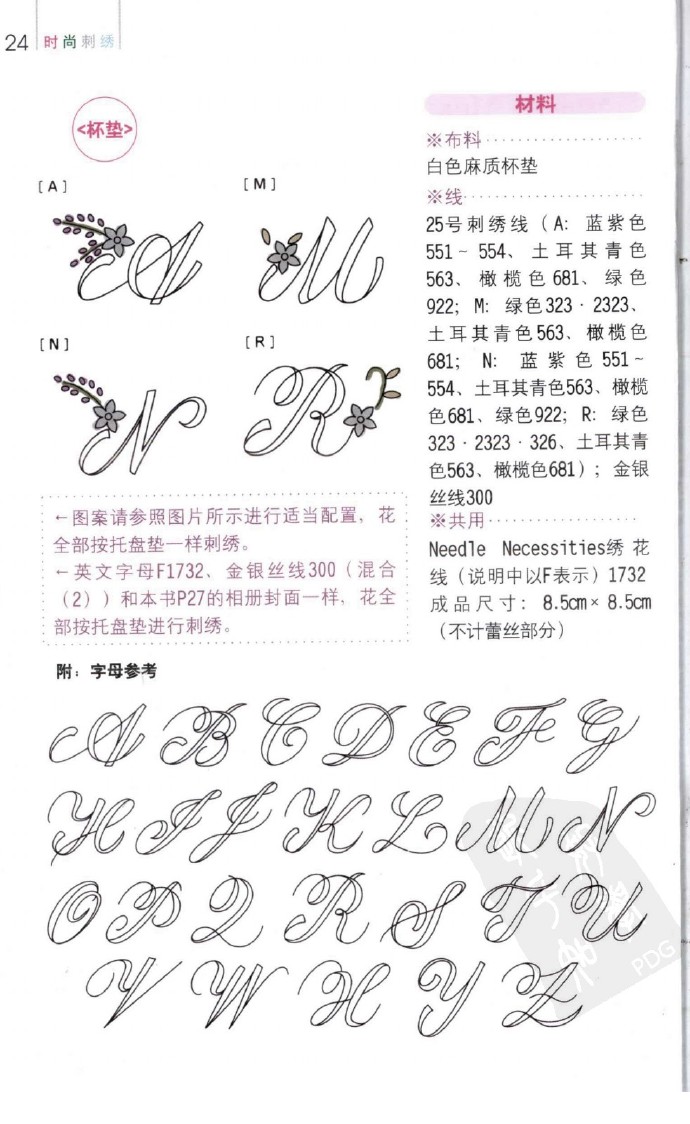 24 时尚刺绣
<杯垫>
[A]
[M]
A
M
[N]
[R]
N
R
←图案请参照图片所示进行适当配置，花
全部按托盘垫一样刺绣。
←英文字母F1732、金银丝线300（混合
（2））和本书P27的相册封面一样，花全
部按托盘垫进行刺绣。
材料
※布料
白色麻质杯垫
※线
25号刺绣线（A：蓝紫色
551～554、土耳其青色
563、橄榄色681、绿色
922；M：绿色323·2323、
土耳其青色563、橄榄色
681；N：蓝紫色551～
554、土耳其青色563、橄榄
色681、绿色922；R：绿色
323·2323·326、土耳其青
色563、橄榄色681）；金银
丝线300
※共用
Needle Necessities绣花
线（说明中以F表示）1732
成品尺寸：8.5cm×8.5cm
（不计蕾丝部分）
附：字母参考
A B C D E F G
H I J K L M N
O P Q R S T U
V W X Y Z
PDG